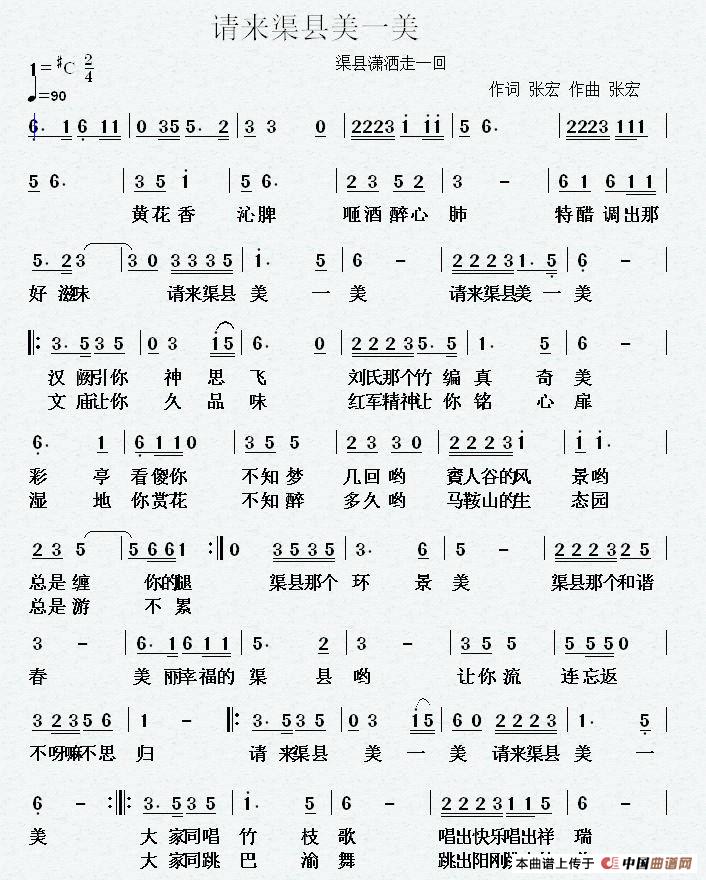 请来渠县美一美
渠县潇洒走一回
1=#C 2/4
♩=90
作词 张宏 作曲 张宏
6· 1 6 1 1 | 0 3 5 5· 2 | 3 3 0 | 2 2 2 3 i i i | 5 6· | 2 2 2 3 1 1 1 |
5 6· | 3 5 i | 5 6· | 2 3 5 2 | 3 – | 6 1 6 1 1 |
黄花香 沁脾 咂酒醉心 肺 特醋 调出那
5· 2 3 | 3 0 3 3 3 5 | 1· 5 | 6 – | 2 2 2 3 1· 5 | 6 – |
好 滋味 请来渠县 美 一 美 请来渠县美 一 美
‖: 3· 5 3 5 | 0 3 1 5 | 6· 0 | 2 2 2 3 5· 5 | 1· 5 | 6 – |
汉 阙引你 神 思 飞 刘氏那个竹 编 真 奇 美
文 庙让你 久 品 味 红军精神让 你 铭 心 扉
6· 1 | 6 1 1 0 | 2 3 5 | 2 3 5 | 3 3 2 3 i | i i· |
彩 亭 看傻你 不知梦 几回哟 賨人谷的风 景哟
湿 地 你赏花 不知醉 多久哟 马鞍山的生 态园
2 3 5 | 5 6 6 1 :‖ 0 3 5 3 5 | 3· 6 | 5 – | 3 2 2 3 2 5 |
总是缠 你的腿 渠县那个 环 景 美 渠县那个和谐
总是游 不 累
3 – | 6· 1 6 1 1 | 5· 2 | 3 – | 3 5 5 | 5 5 5 0 |
春 美 丽幸福的 渠 县 哟 让你流 连忘返
3 2 3 5 6 | 1 – ‖: 3· 5 3 5 | 0 3 1 5 | 6 0 2 2 2 3 | 1· 5 |
不呀嘛不思 归 请 来渠县 美 一 美 请来渠县 美 一
6 – :‖: 3· 5 3 5 | 2· 3 | 6 – | 3 2 2 3 1 1 5 | 6 – |
美 大 家同唱 竹 枝 歌 唱出快乐唱出祥 瑞
大 家同跳 巴 渝 舞 跳出阳刚
本曲谱上传于 中国曲谱网